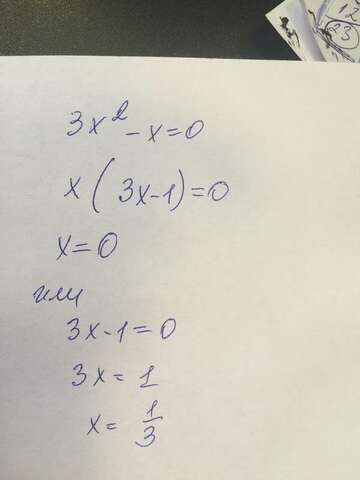 12
23
3x² - x = 0
x(3x-1) = 0
x = 0
или
3x - 1 = 0
3x = 1
x = 1/3